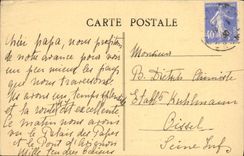 CARTE POSTALE
Cher papa, nous profitons
de notre avance pour voir
un peu mieux les pays
que nous traversons
Nous avons un temps splendide
et la route est excellente
Ce matin nous avons
vu le Palais des Papes
et le Pont d'Avignon
Mille tendres baisers
Monsieur
P. Dietels Chimiste
Etabts Kuhlmann
Oissel
Seine Infre